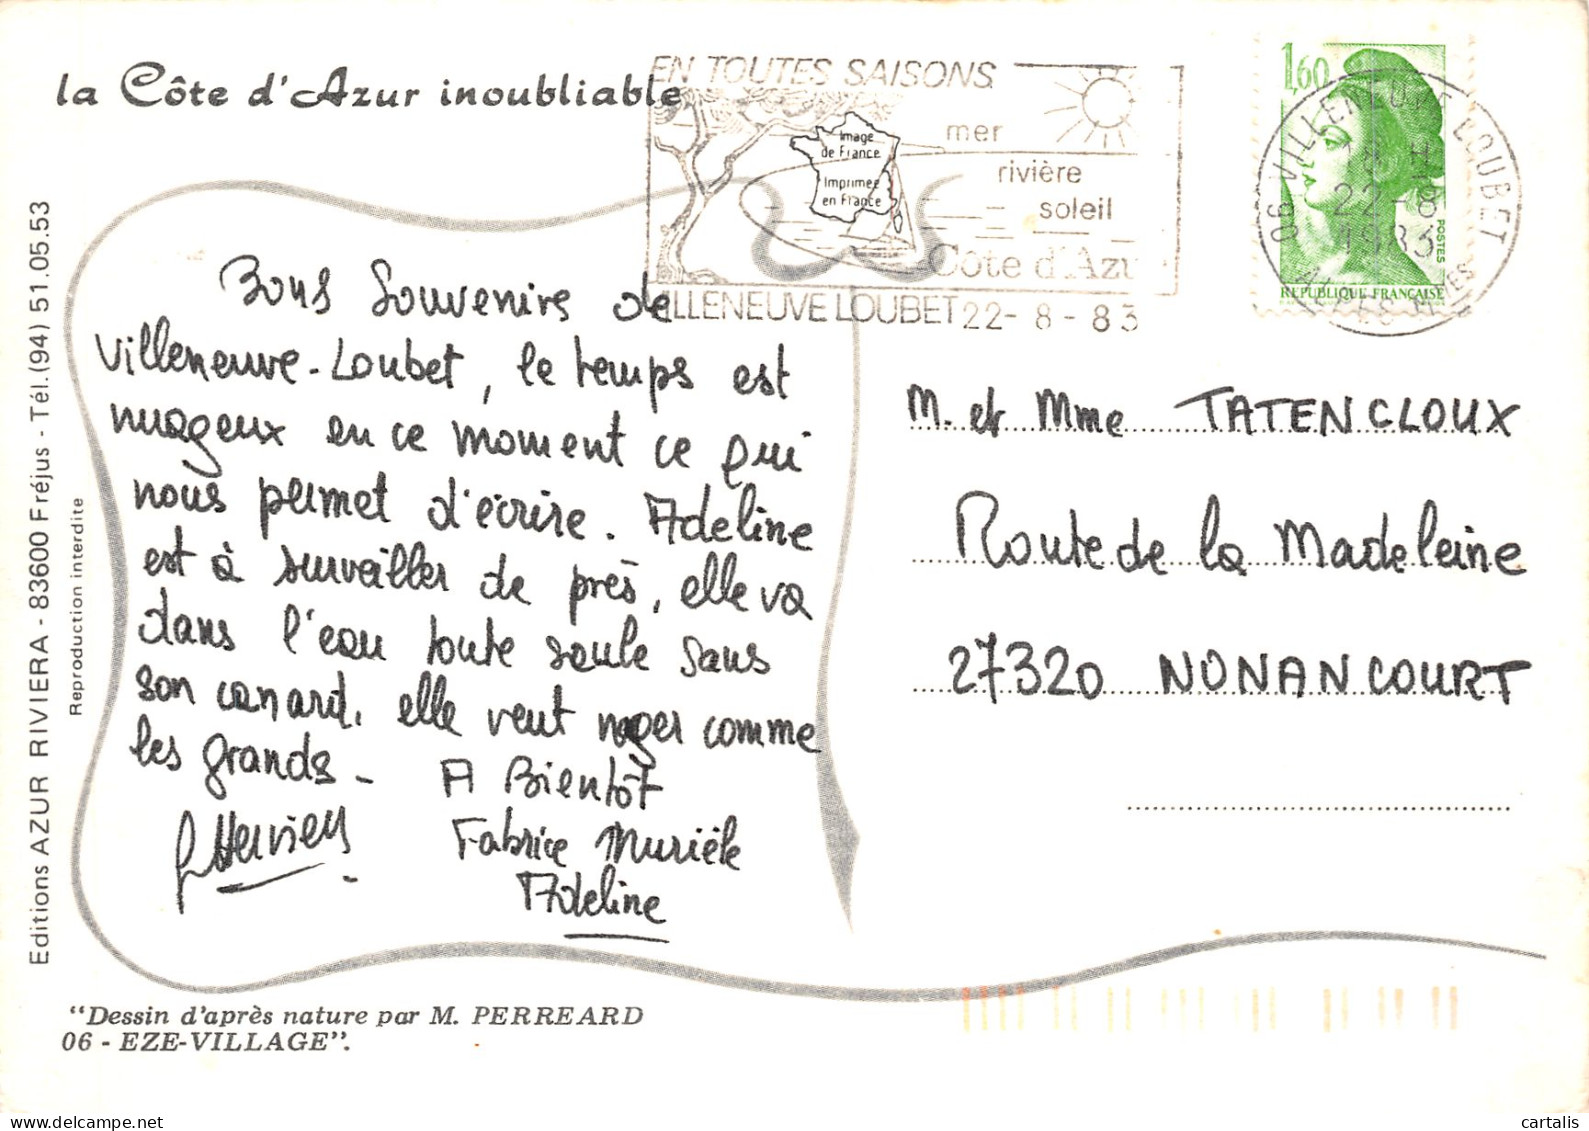 la Côte d'Azur inoubliable
EN TOUTES SAISONS
mer
rivière
soleil
Côte d'Azu
Image
de France
Imprimée
en France
VILLENEUVE LOUBET 22-8-83
1,60
POSTES
REPUBLIQUE FRANÇAISE
06 VILLENEUVE LOUBET
22-8
1983
Bons Souvenirs de
Villeneuve-Loubet, le temps est
nuageux en ce moment ce qui
nous permet d'écrire. Adeline
est à surveiller de près, elle va
dans l'eau toute seule sans
son canard, elle veut nager comme
les grands-
A Bientôt
Fabrice Murièle
Adeline
M. et Mme TATENCLOUX
Route de la Madeleine
27320 NONANCOURT
Editions AZUR RIVIERA - 83600 Fréjus - Tél. (94) 51.05.53
Reproduction interdite
"Dessin d'après nature par M. PERREARD
06 - EZE-VILLAGE".
cartalis
delcampe.net